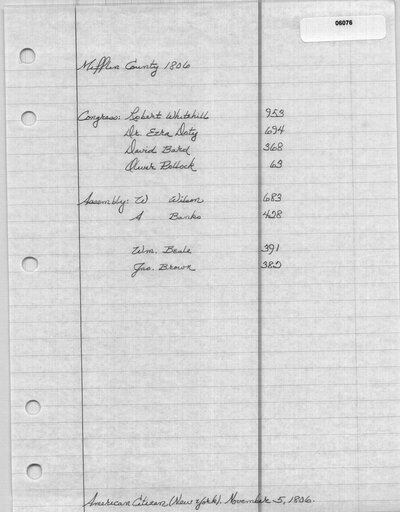 06076
Mifflin County 1806
Congress: Robert Whitehill 953
Dr. Ezra Doty 694
David Bard 368
Oliver Pollock 63
Assembly: W Wilson 683
A Banks 428
Wm. Beale 391
Jno. Brown 382
American Citizen (New York). November 5, 1806.